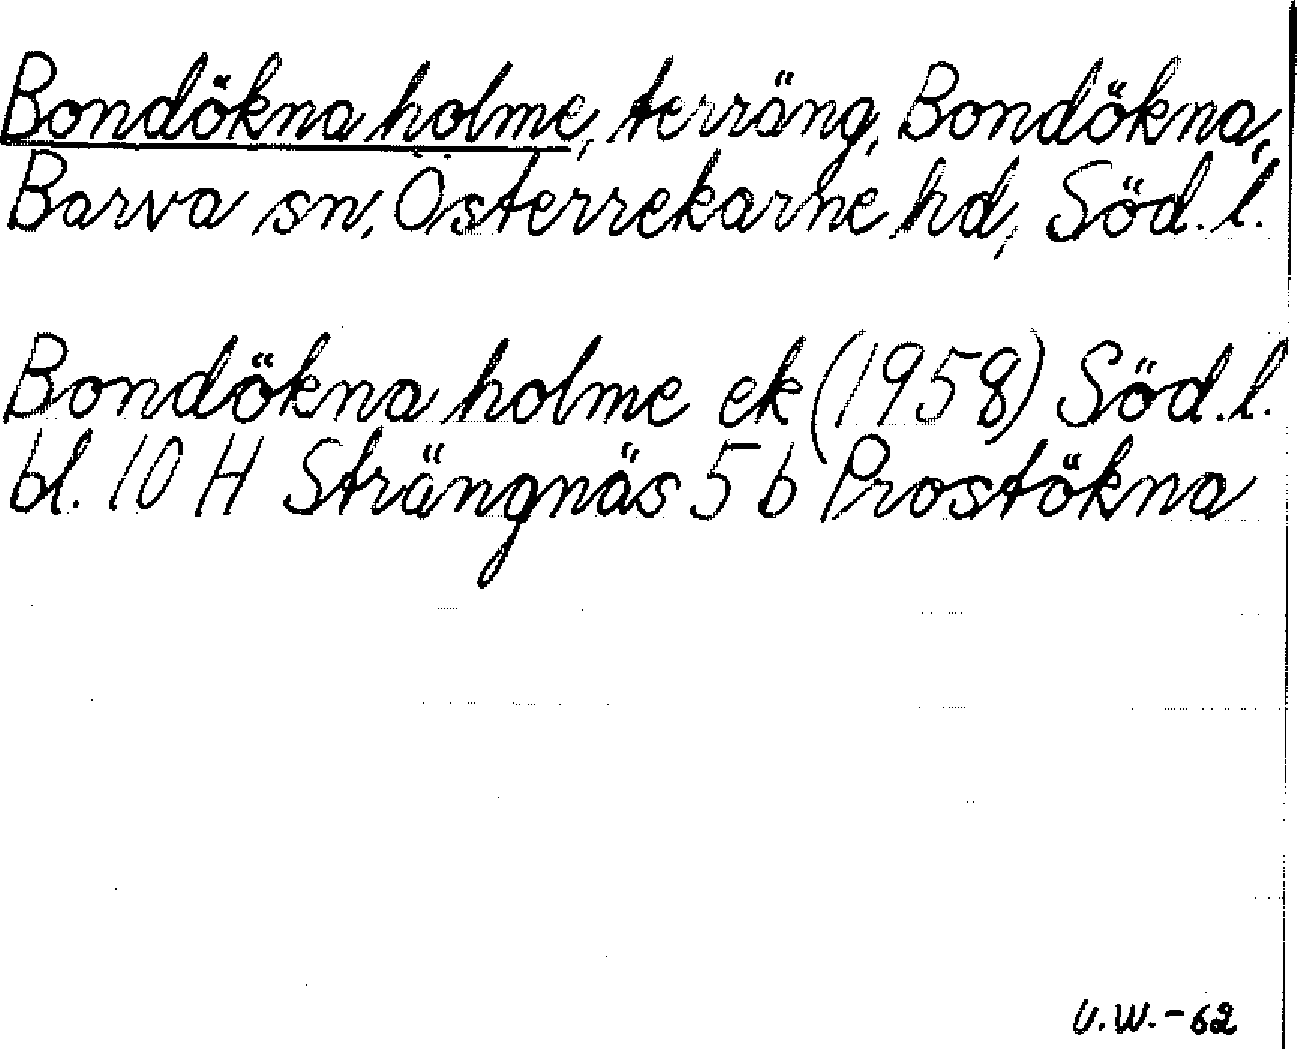 Bondökna holme, terräng, Bondökna,
Barva sn, Österrekarne hd, Söd. l.
Bondökna holme ek (1958) Söd. l.
bl. 10 H Strängnäs 5 b Prostökna
U.W.-62